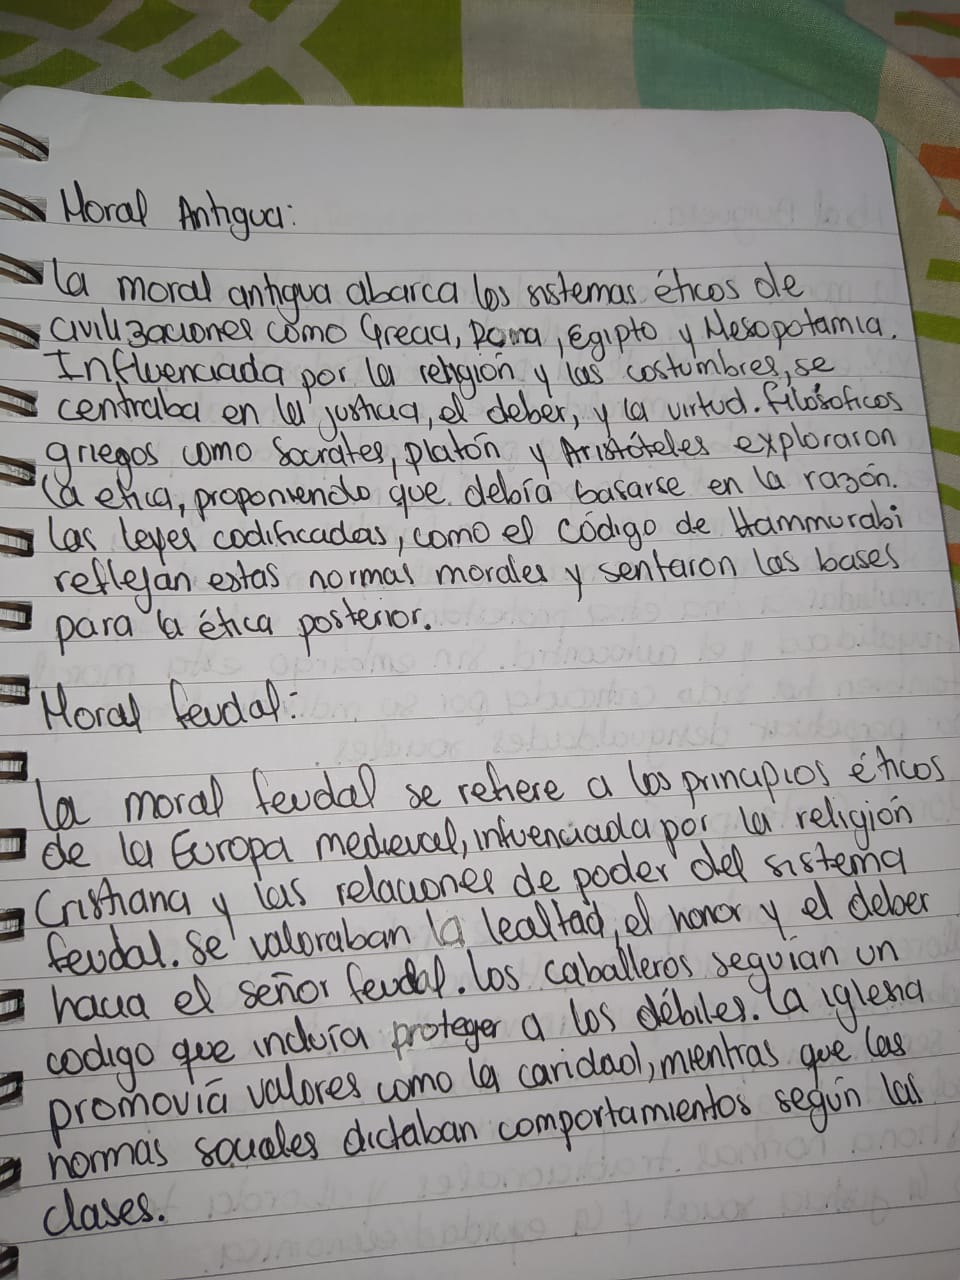 Moral Antigua:
La moral antigua abarca los sistemas éticos de
civilizaciones como Grecia, Roma, Egipto y Mesopotamia.
Influenciada por la religión y las costumbres, se
centraba en la justicia, el deber, y la virtud. Filósoficos
griegos como Socrátes, platón y Aristóteles exploraron
la etica, proponiendo que debía basarse en la razón.
Las leyes codificadas, como el Código de Hammurabi
reflejan estas normas morales y sentaron las bases
para la ética posterior.
Moral feudal:
La moral feudal se refiere a los principios éticos
de la Europa medieval, infuenciada por la religión
Cristiana y las relaciones de poder del sistema
feudal. Se valoraban la lealtad, el honor y el deber
hacia el señor feudal. Los caballeros seguían un
codigo que incluía proteger a los débiles. La iglesia
promovía valores como la caridad, mientras que las
normas sociales dictaban comportamientos según las
clases.